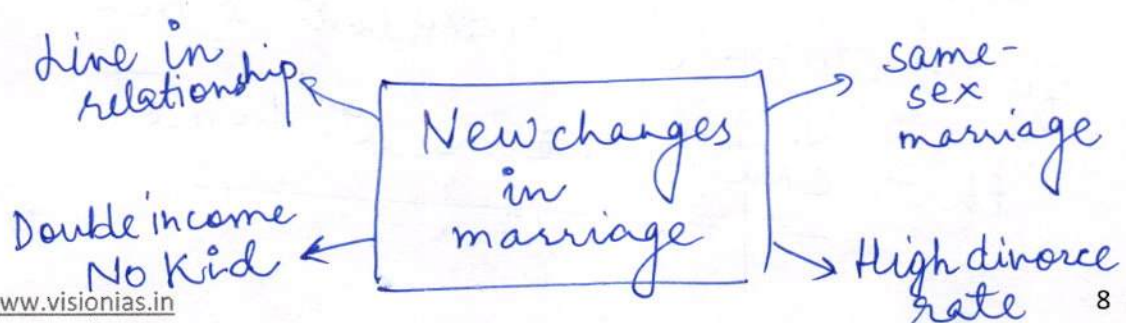 Live in
relationship
same-
sex
marriage
New changes
in
marriage
Double income
No Kid
High divorce
rate
ww.visionias.in
8